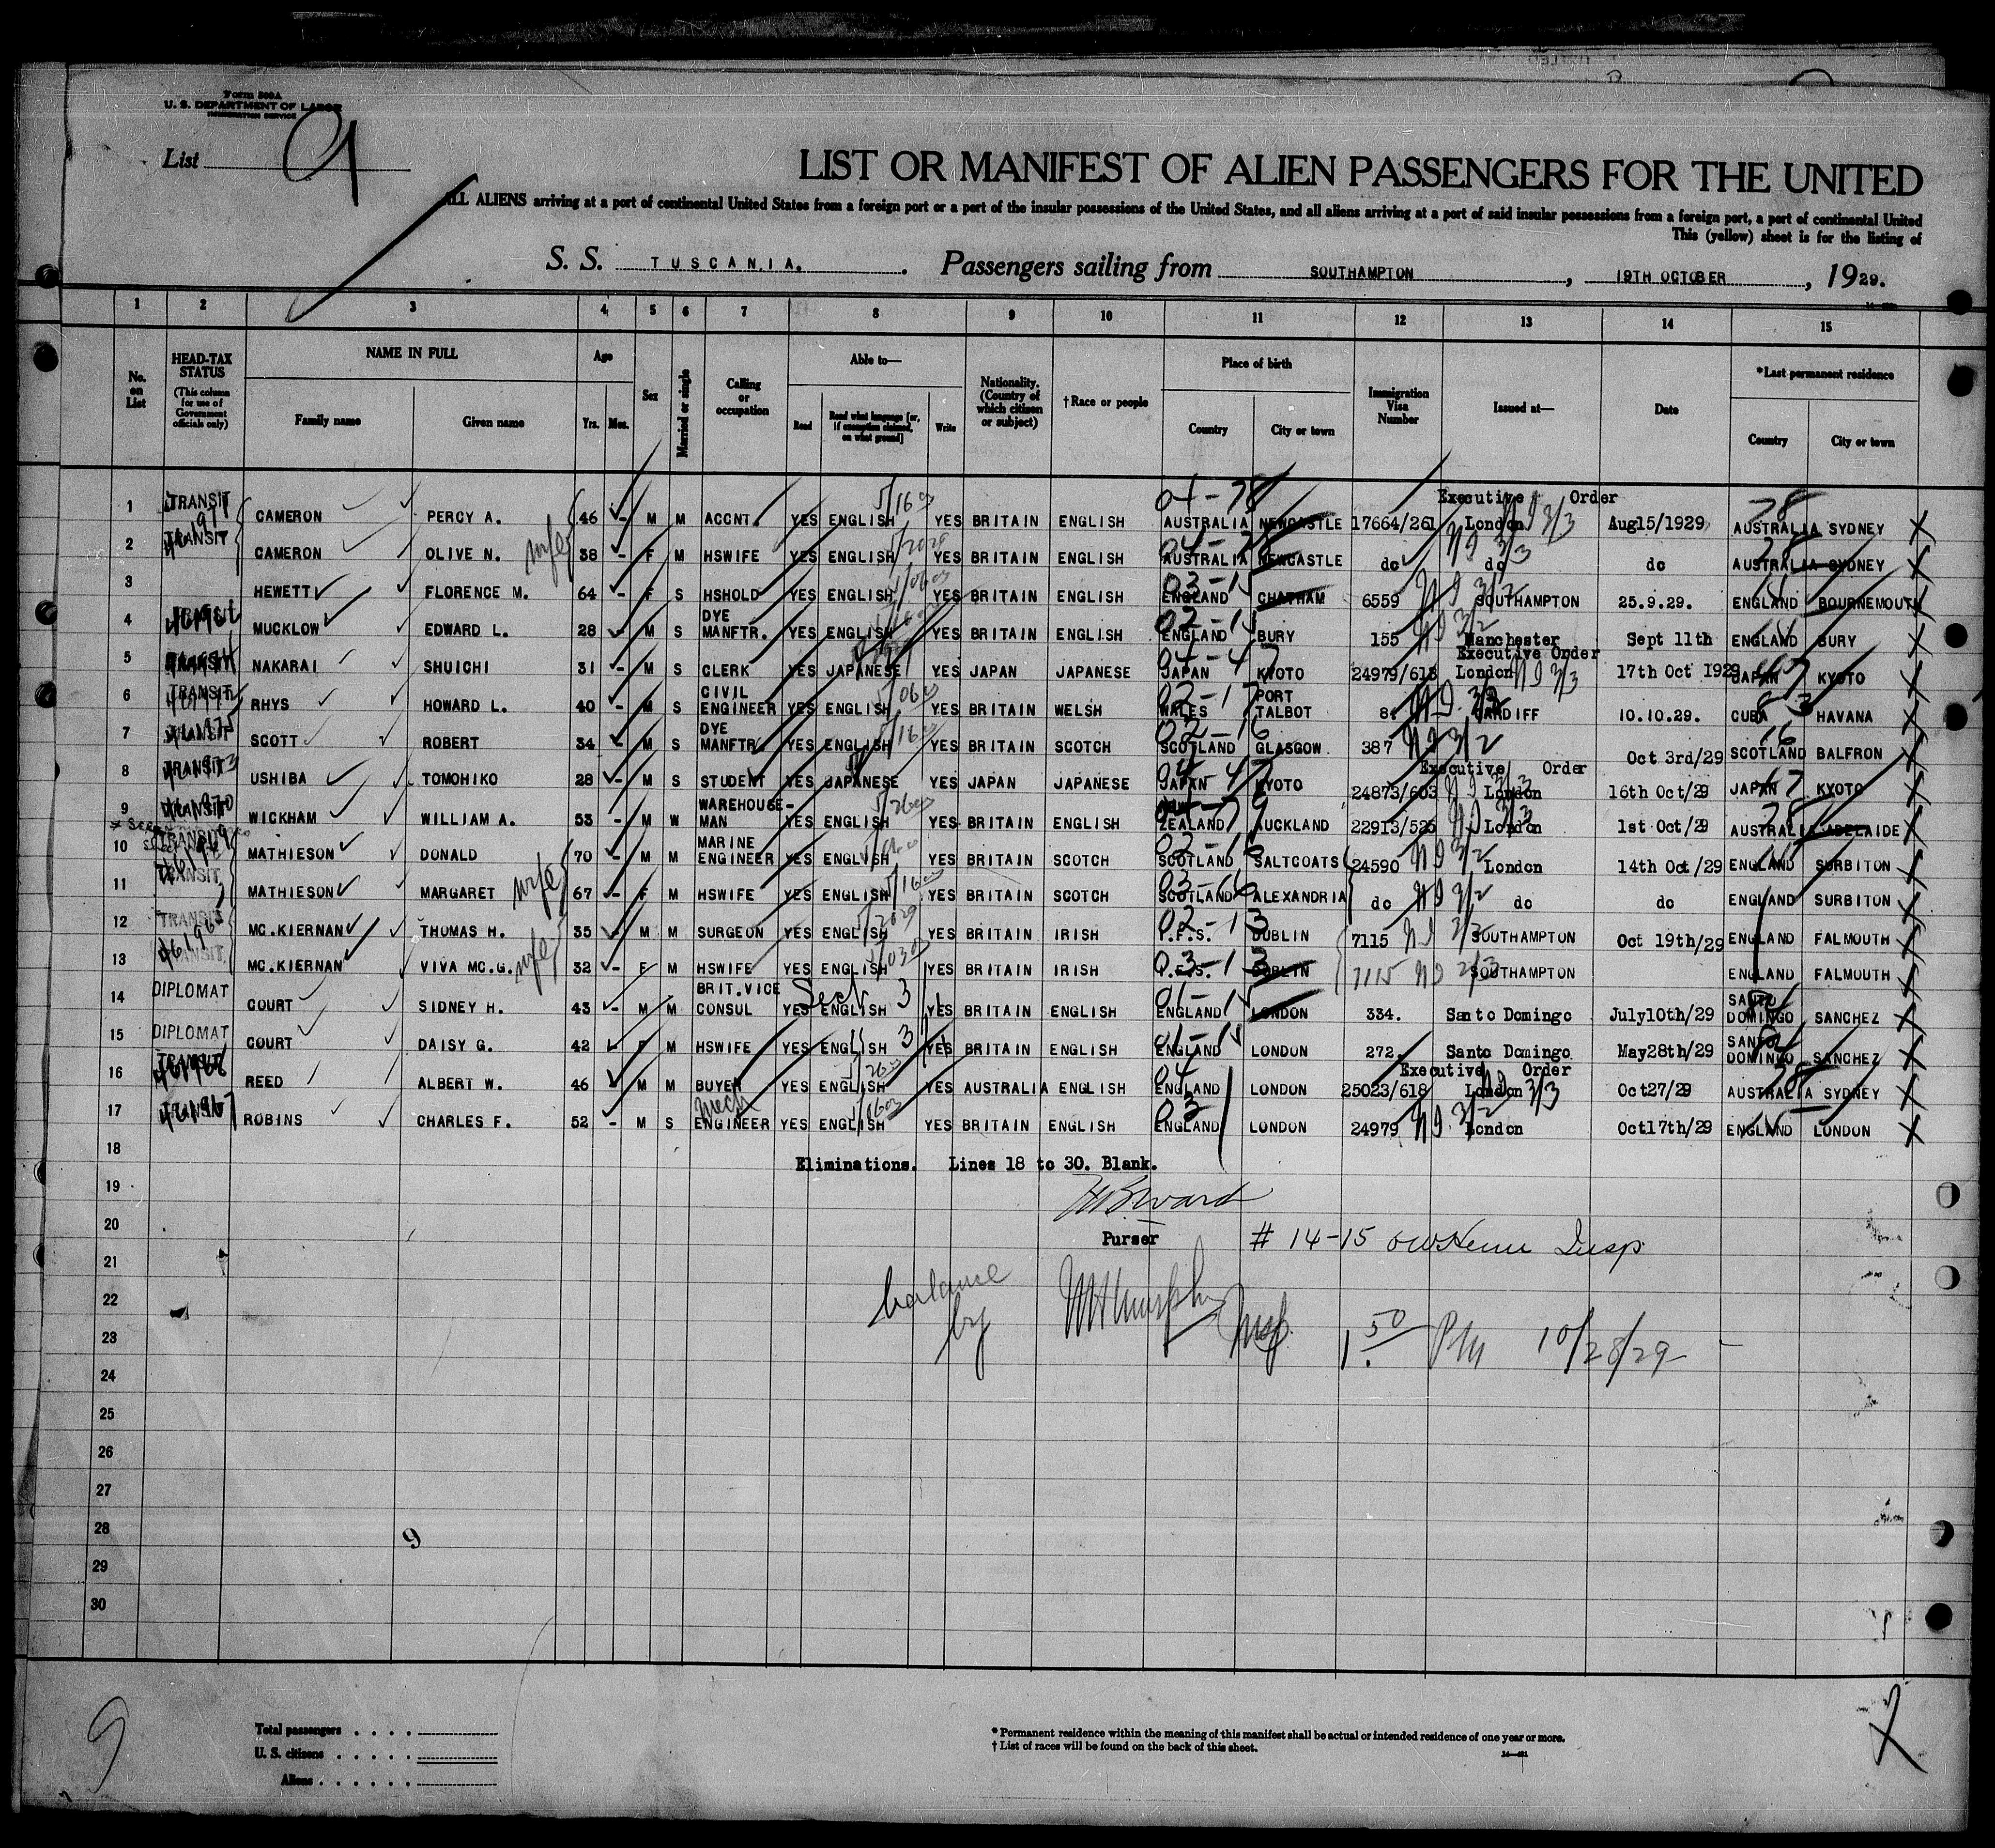 Form 500A
U. S. DEPARTMENT OF LABOR
IMMIGRATION SERVICE
List 9
LIST OR MANIFEST OF ALIEN PASSENGERS FOR THE UNITED
ALL ALIENS arriving at a port of continental United States from a foreign port or a port of the insular possessions of the United States, and all aliens arriving at a port of said insular possessions from a foreign port, a port of continental United
This (yellow) sheet is for the listing of
S. S. TUSCANIA. Passengers sailing from SOUTHAMPTON, 19TH OCTOBER, 1929.
1 2 3 4 5 6 7 8 9 10 11 12 13 14 15
No. on List
HEAD-TAX STATUS (This column for use of Government officials only)
NAME IN FULL
Family name Given name
Age Yrs. Mos.
Sex
Married or single
Calling or occupation
Able to—
Read Read what language [or, if exemption claimed, on what ground] Write
Nationality. (Country of which citizen or subject)
†Race or people
Place of birth
Country City or town
Immigration Visa Number
Issued at—
Date
*Last permanent residence
Country City or town
1 TRANSIT CAMERON PERCY A. 46 - M M ACCNT. YES ENGLISH YES BRITAIN ENGLISH AUSTRALIA NEWCASTLE 17664/261 Executive Order London Aug15/1929 AUSTRALIA SYDNEY X
2 TRANSIT CAMERON OLIVE N. wife 38 - F M HSWIFE YES ENGLISH YES BRITAIN ENGLISH AUSTRALIA NEWCASTLE do do do AUSTRALIA SYDNEY X
3 HEWETT FLORENCE M. 64 - F S HSHOLD YES ENGLISH YES BRITAIN ENGLISH ENGLAND CHATHAM 6559 SOUTHAMPTON 25.9.29. ENGLAND BOURNEMOUTH X
4 TRANSIT MUCKLOW EDWARD L. 28 - M S DYE MANFTR. YES ENGLISH YES BRITAIN ENGLISH ENGLAND BURY 155 Manchester Sept 11th ENGLAND BURY X
5 TRANSIT NAKARAI SHUICHI 31 - M S CLERK YES JAPANESE YES JAPAN JAPANESE JAPAN KYOTO 24979/618 Executive Order London 17th Oct 1929 JAPAN KYOTO X
6 TRANSIT RHYS HOWARD L. 40 - M S CIVIL ENGINEER YES ENGLISH YES BRITAIN WELSH WALES PORT TALBOT 8. CARDIFF 10.10.29. CUBA HAVANA X
7 TRANSIT SCOTT ROBERT 34 - M S DYE MANFTR. YES ENGLISH YES BRITAIN SCOTCH SCOTLAND GLASGOW 387 Oct 3rd/29 SCOTLAND BALFRON X
8 TRANSIT USHIBA TOMOHIKO 28 - M S STUDENT YES JAPANESE YES JAPAN JAPANESE JAPAN KYOTO 24873/603 Executive Order London 16th Oct/29 JAPAN KYOTO X
9 TRANSIT WICKHAM WILLIAM A. 53 - M W WAREHOUSE-MAN YES ENGLISH YES BRITAIN ENGLISH ZEALAND AUCKLAND 22913/525 London 1st Oct/29 AUSTRALIA ADELAIDE X
10 TRANSIT MATHIESON DONALD 70 - M M MARINE ENGINEER YES ENGLISH YES BRITAIN SCOTCH SCOTLAND SALTCOATS 24590 London 14th Oct/29 ENGLAND SURBITON X
11 TRANSIT MATHIESON MARGARET wife 67 - F M HSWIFE YES ENGLISH YES BRITAIN SCOTCH SCOTLAND ALEXANDRIA do do do ENGLAND SURBITON X
12 TRANSIT MC.KIERNAN THOMAS H. 35 - M M SURGEON YES ENGLISH YES BRITAIN IRISH I.F.S. DUBLIN 7115 SOUTHAMPTON Oct 19th/29 ENGLAND FALMOUTH X
13 TRANSIT MC.KIERNAN VIVA MC.G. wife 32 - F M HSWIFE YES ENGLISH YES BRITAIN IRISH I.F.S. DUBLIN 7115 SOUTHAMPTON ENGLAND FALMOUTH X
14 DIPLOMAT COURT SIDNEY H. 43 - M M BRIT.VICE CONSUL YES ENGLISH Sect 3 YES BRITAIN ENGLISH ENGLAND LONDON 334. Santo Domingo July10th/29 SANTO DOMINGO SANCHEZ X
15 DIPLOMAT COURT DAISY G. 42 - F M HSWIFE YES ENGLISH 3 YES BRITAIN ENGLISH ENGLAND LONDON 272. Santo Domingo May28th/29 SANTO DOMINGO SANCHEZ X
16 TRANSIT REED ALBERT W. 46 M M BUYER YES ENGLISH YES AUSTRALIA ENGLISH ENGLAND LONDON 25023/618 Executive Order London Oct27/29 AUSTRALIA SYDNEY X
17 TRANSIT ROBINS CHARLES F. 52 - M S Mech ENGINEER YES ENGLISH YES BRITAIN ENGLISH ENGLAND LONDON 24979 London Oct17th/29 ENGLAND LONDON X
18
Eliminations. Lines 18 to 30. Blank.
19
20
Purser
# 14-15 Insp
21
22
balance by Insp. 1.50 PM 10/28/29
23
24
25
26
27
28
9
29
30
9
Total passengers
U. S. citizens
Aliens
* Permanent residence within the meaning of this manifest shall be actual or intended residence of one year or more.
† List of races will be found on the back of this sheet.
X